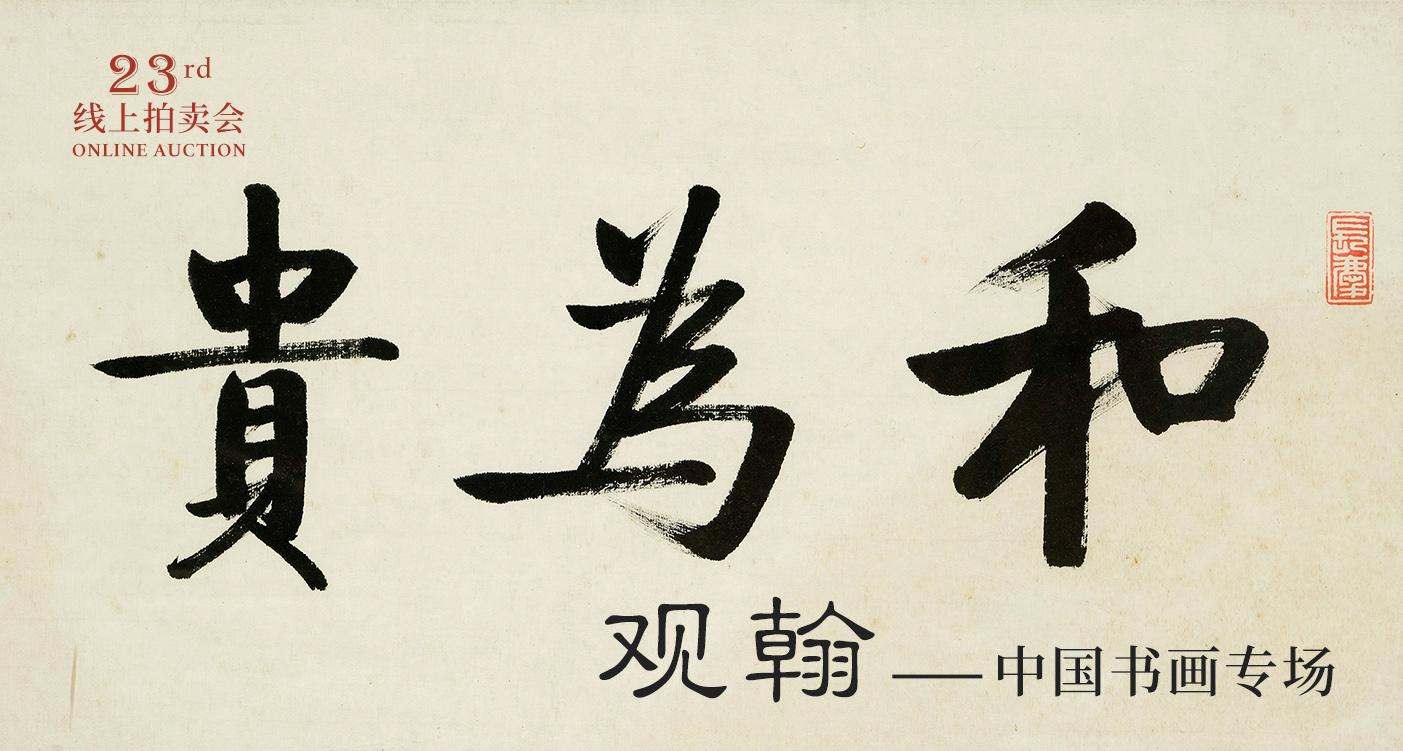 23rd
线上拍卖会
ONLINE AUCTION
和為貴
观翰——中国书画专场